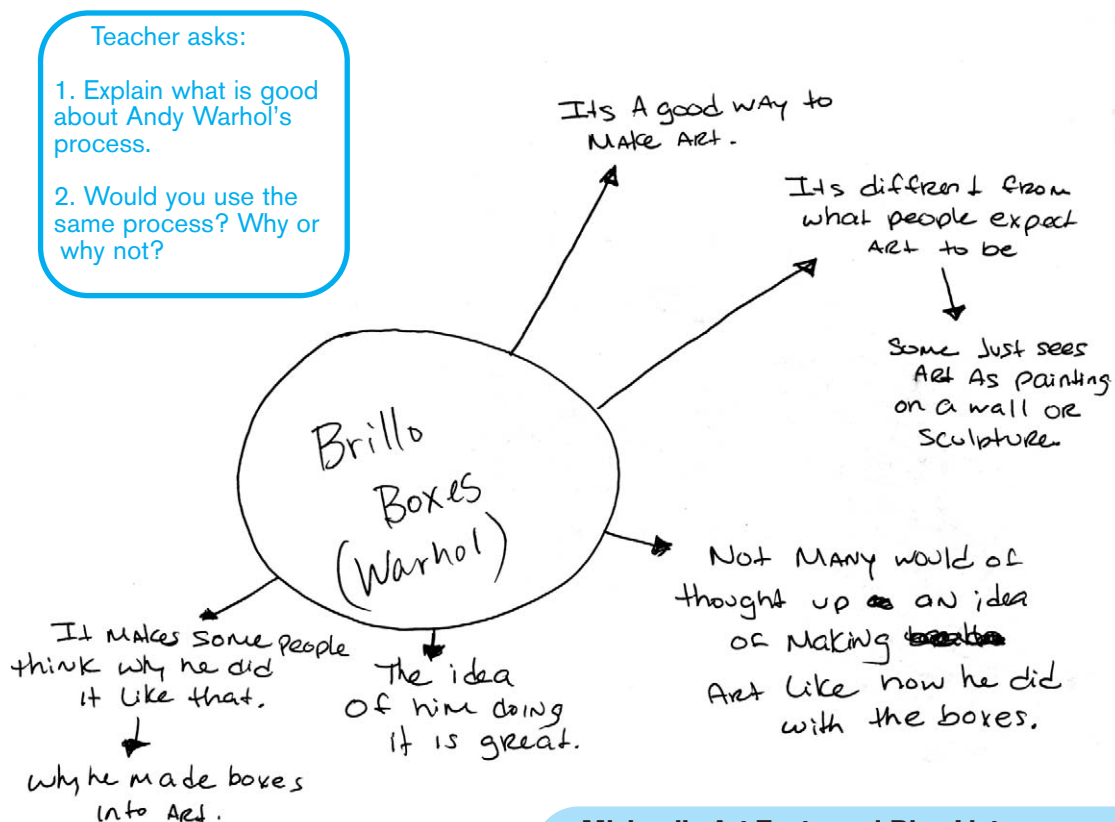 Teacher asks:
1. Explain what is good
about Andy Warhol's
process.
2. Would you use the
same process? Why or
why not?
Its A good way to
Make Art.
Its diffrent from
what people expect
Art to be
Some Just sees
Art As painting
on a wall or
Sculpture.
Brillo
Boxes
(Warhol)
Not Many would of
thought up an idea
of Making
Art Like how he did
with the boxes.
The idea
Of him doing
it is great.
It makes some people
think why he did
it Like that.
why he made boxes
into Art.